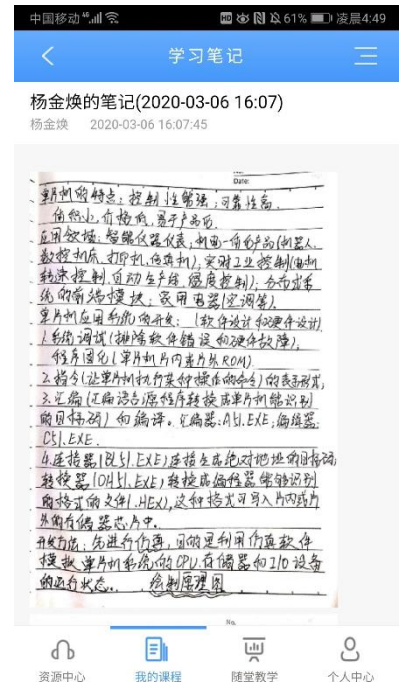 中国移动 61% 凌晨4:49
学习笔记
杨金焕的笔记(2020-03-06 16:07)
杨金焕 2020-03-06 16:07:45
Date:
单片机的特点：控制性能强，可靠性高
体积小，价格低，易于产品化
应用领域：智能仪器仪表，机电一体化产品(机器人、
数控机床、打印机、复印机)，实时工业控制(电机
转速控制，自动生产线，温度控制)；分布式系
统的前端模块；家用电器(空调等)
单片机应用系统的开发：(软件设计和硬件设计)
1.系统调试(排除软件错误和硬件故障)，
程序固化(单片机片内或片外ROM)
2.指令(让单片机执行某种操作的命令)的表示形式，
3.汇编(汇编语言源程序转换成单片机能识别
的目标码)和编译。汇编器：A51.EXE；编译器：
C51.EXE.
4.连接器(BL51.EXE)连接生成绝对地址的目标码；
转换器(OH51.EXE)转换成编程器能够识别
的格式的文件(.HEX)，这种格式可写入片内或片
外的存储器芯片中。
开发方法：先进行仿真，目的是利用仿真软件
模拟单片机系统的CPU、存储器和I/O设备
的运行状态。 绘制原理图
No.
资源中心 我的课程 随堂教学 个人中心